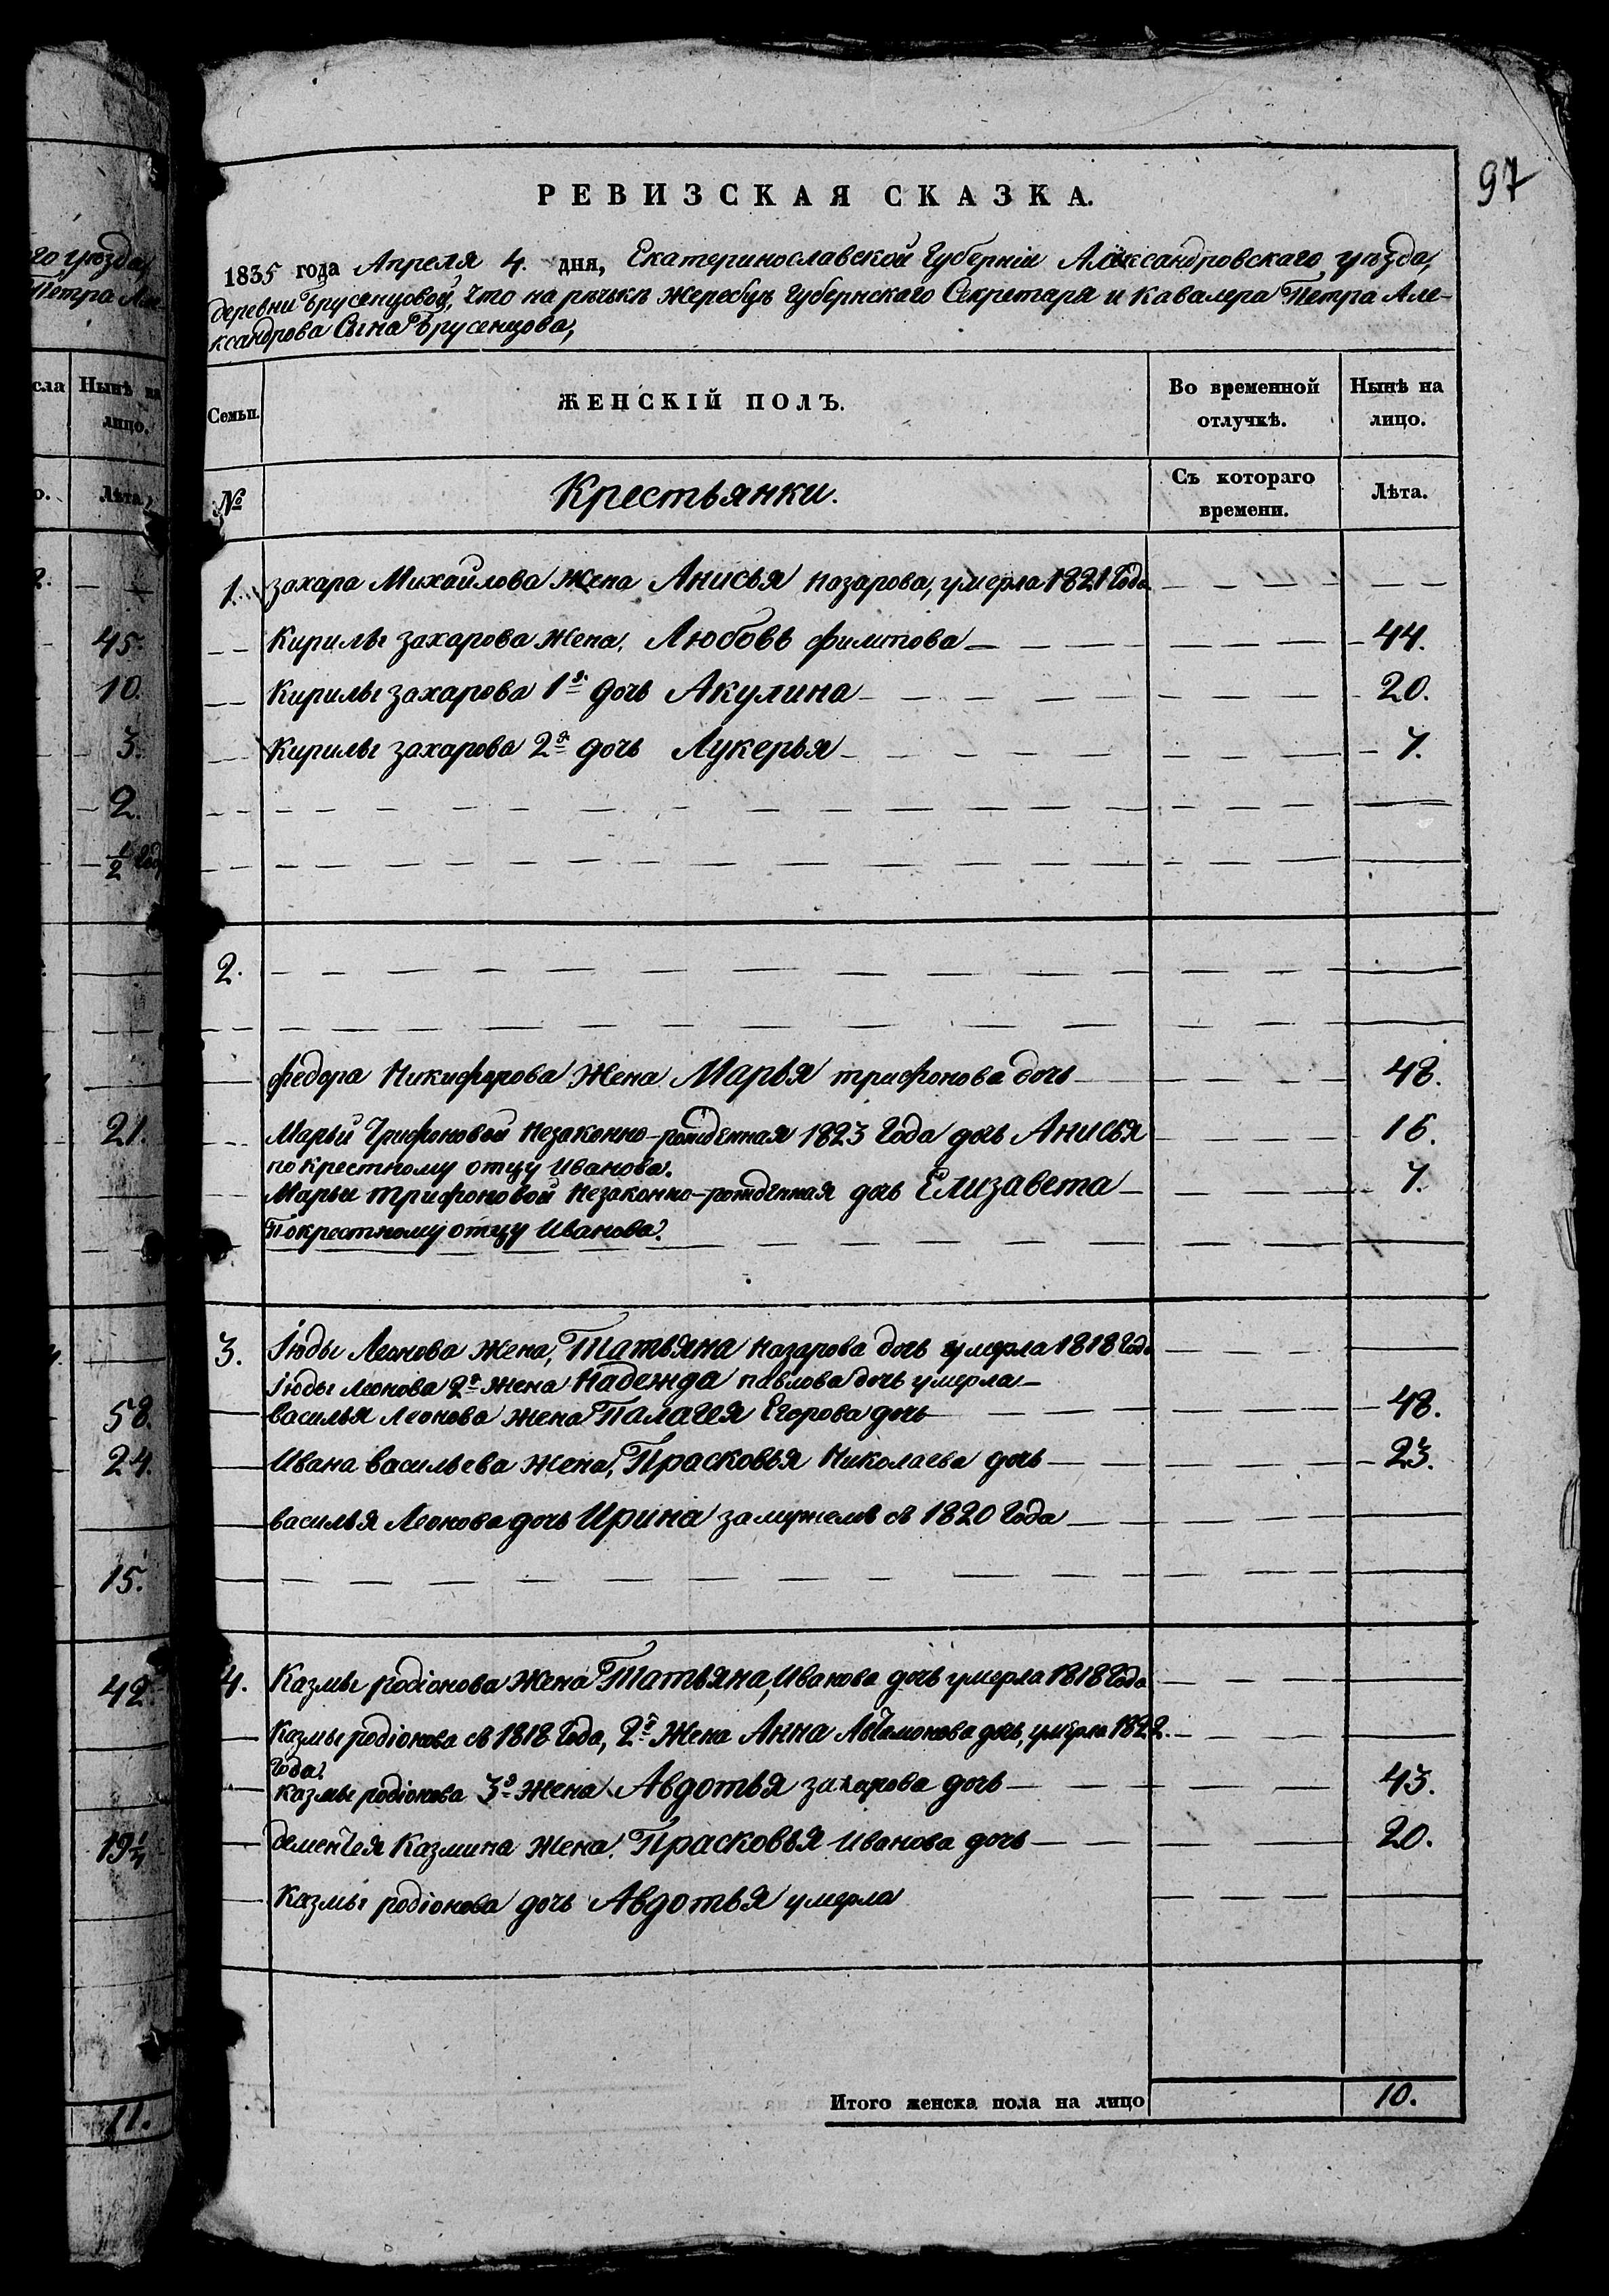 97
РЕВИЗСКАЯ СКАЗКА.
1835 года Апреля 4. дня, Екатеринославской Губерніи Александровскаго уѣзда,
деревни Брусенцовой, что на рѣчькѣ Жеребцѣ Губернскаго Секретаря и Кавалера Петра Але-
ксандрова Сына Брусенцова,
Семьи. ЖЕНСКІЙ ПОЛЪ. Во временной отлучкѣ. Нынѣ на лицо.
№ Крестьянки. Съ котораго времени. Лѣта.
1. захара Михайлова жена Анисья назарова, умерла 1821 Года
Кирилы захарова жена, Любовь филипова 44.
Кирилы захарова 1я дочь Акулина 20.
Кирилы захарова 2я дочь Лукерья 7.
2.
федора Никифорова жена Марья трифонова дочь 48.
Марьи Трифоновой незаконно-рожденная 1823 Года дочь Анисья 16.
по крестному отцу Иванова.
Марьи трифоновой незаконно-рожденная дочь Елизавета 7.
По крестному отцу Иванова.
3. Іюды Леонова жена, Татьяна назарова дочь умерла 1818 Года
Іюды Леонова 2я жена Надежда павлова дочь умерла
василья Леонова жена Палагея Егорова дочь 48.
Ивана васильева жена, Прасковья Николаева дочь 23.
василья Леонова дочь Ирина замужемъ съ 1820 Года
4. Казмы родіонова жена Татьяна, Иванова дочь умерла 1818 Года
Казмы родіонова съ 1818 Года, 2я жена Анна Автамонова дочь, умерла 1822.
Года
Казмы родіонова 3я жена Авдотья захарова дочь 43.
дементея Казмина жена, Прасковья Иванова дочь 20.
Казмы родіонова дочь Авдотья умерла
Итого женска пола на лицо 10.
го уѣзда,
Петра Але
сла Нынѣ на
лицо.
о. Лѣта,
2.
45.
10.
3.
2.
1/2 год
21.
58.
24.
15.
42.
19 1/4
11.